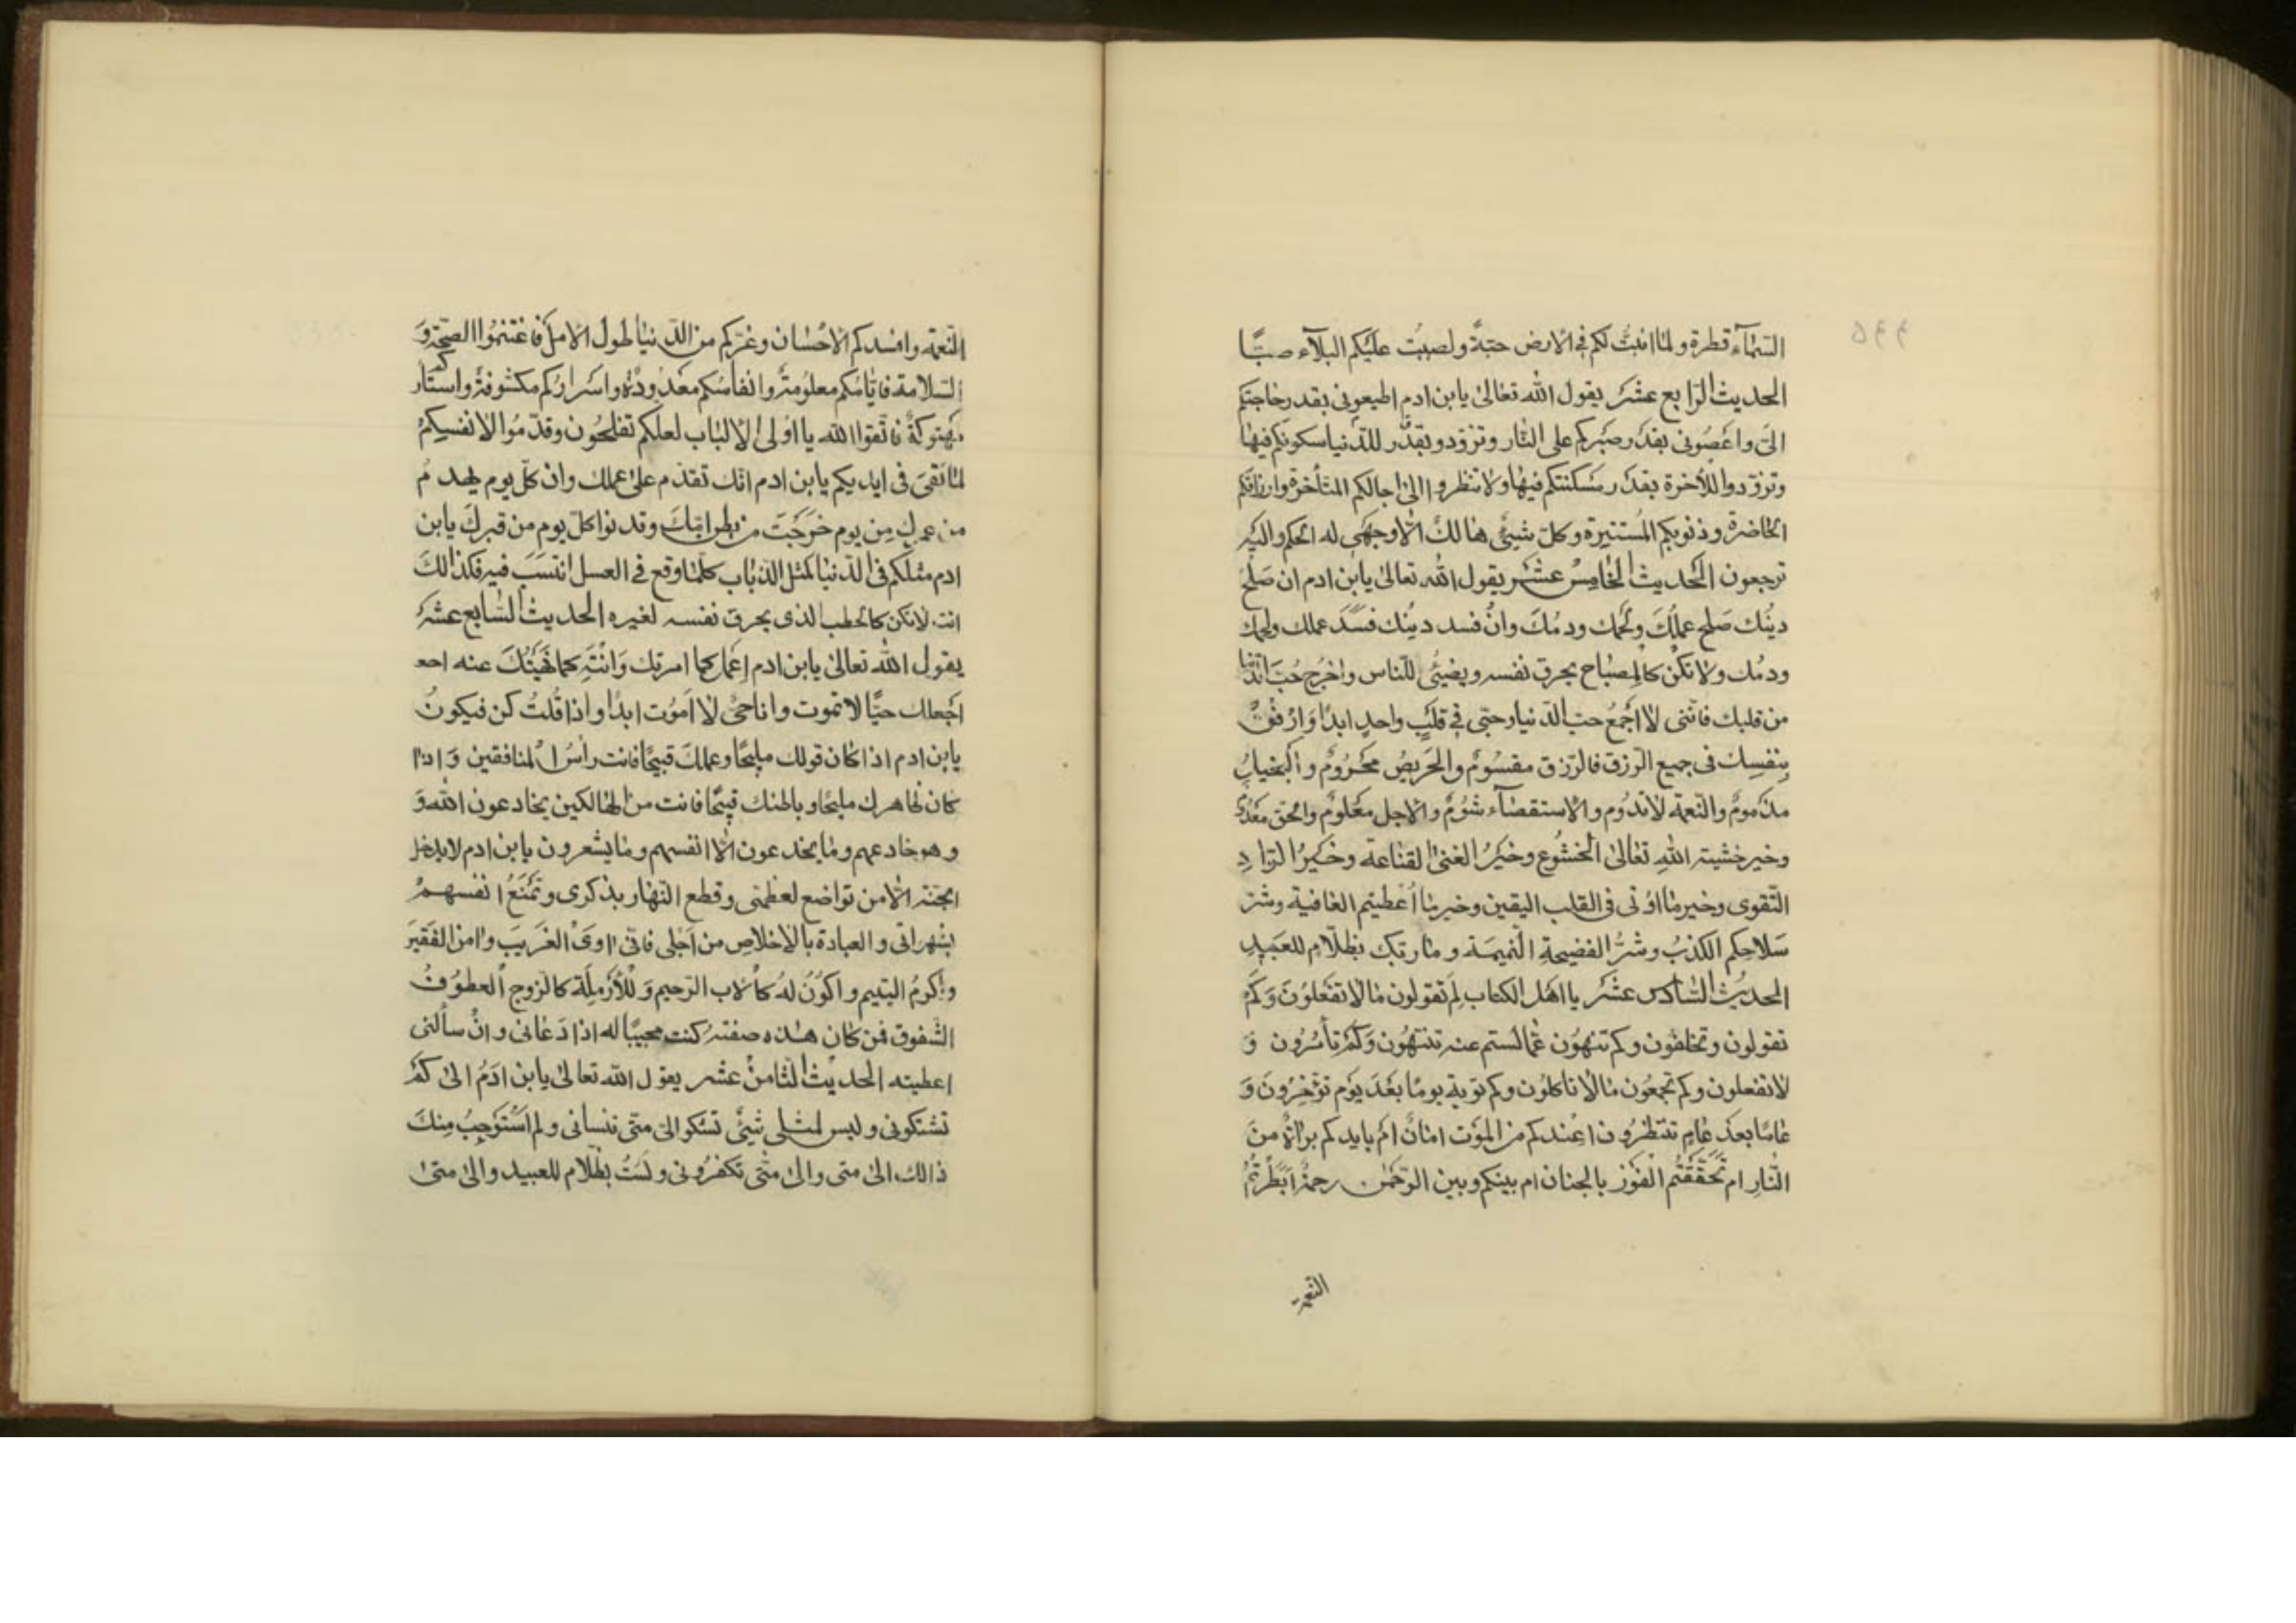 ۵۴۴
السّمآء قطرة ولما انبتُّ لكم فى الارض حبةً ولصببت عليكم البلآء صبًّا
الحديث الرّابع عشر يقول الله تعالى يابن ادم اطيعونى بقدر حاجتكم
الىّ واعصُونى بقدر صبركم على النّار وتزوّدو بقدر للدّنيا سكونكم فيها
وتزوّدوا للأخرة بقدر مسكنتكم فيها ولا تنظروا الى اجالكم المتأخرة وارزاقكم
الحاضرة وذنوبكم المُستنيرة وكلّ شيئٍ هالكٌ الّا وجهى له الحكم واليه
ترجعون الحديث الخامس عشر يقول الله تعالى يابن ادم ان صَلُحَ
دينُك صَلح عملُكَ ولحمك ودمُكَ وانْ فسد دينُك فسَدَ عملك ولحمك
ودمُك ولا تكنْ كالمِصْباح يحرق نفسه ويضيئُ للنّاس واخرج حُبّ الدّنيا
من قلبك فانّنى لا اجمعُ حبّ الدّنيا وحبّى فى قلبٍ واحدٍ ابدًا وَارْفقْ
بِنفسِك فى جميع الرّزق فالرّزق مقسُومٌ والحَريصُ محرُومٌ والبخيلُ
مذمومٌ والنّعمة لا تدُوم والاستقصآء شومٌ والاجل معلومٌ والحق معدُ
وخير خشيته اللهِ تعالى الخشُوع وخيرُ الغنىٰ القناعة وخيرُ الزّادِ
التّقوى وخير ما اوُتى فى القلب اليقين وخير ما اُعطيتم العافية وشرّ
سَلاحكم الكذبُ وشرُّ الفضيحةِ النّميمَة وما ربّك بظلّامٍ للعبيدِ
الحديث السّادس عشر يا اهل الكتاب لِمَ تقولون مالا تفعلونَ وَكَمْ
تقولون وتخلفون وكم تنهوْن عمّا لستم عنه تنتهُون وَكَمْ تأمُرُون وَ
لا تفعلون وكم تجمعُون مالا تاكلوُن وكم توبةٍ يومًا بَعْدَ يوْمٍ توخّرُونَ وَ
عامًا بعدَ عامٍ تنتظرُون اعِنْدكم من الموْت امانٌ امْ بايديكم براةٌ منَ
النّارِ ام تَحَقّقَتُم الفوْز بالجنان ام بينكم وبين الرّحمٰن رحمةٌ ابَطَرَتْكُمُ
النّعمة
النّعمة وافسدكم الاحْسان وغرّكم من الدّنيا طول الامل فاغتنموُا الصحّة وَ
السّلامة فايّامُكم معلوُمةٌ وانفاسُكم معدُودةٌ واسرارُكم مكشُوفةٌ واستاركم
مهتوكةٌ فاتّقوا الله يا اوُلى الالباب لعلّكم تفلحُون وقدّموُا لانفسِكمْ
لما تقىَ فى ايديكم يابن ادم انّك تقدّم على عملك وان كلّ يوم يهدمُ
من عمرك مِن يوم خرَجْتَ من بطن امّكَ وقد نوا كلّ يوم من قبركَ يابن
ادم مثلكم فى الدّنيا كمثل الذّباب كلّما وقع فى العسل انتسَبَ فيه فكذالكَ
انت لا تكن كالحطب الذى يحرق نفسه لغيره الحديث السّابع عشر
يقول الله تعالىٰ يابن ادم اِعْمَل كما امرتك وَانْتَهِ كما نَهَيْتُكَ عنه احعـ
اجعلك حيًّا لا تموت وانا حىٌّ لا اموُت ابدًا واذا قُلتُ كن فيكونُ
يابن ادم اذا كان قولك مليحًا وعملك قبيحًا فانت رأسُ المنافقين وَاذا
كان ظاهرك مليحًا وباطنك قبيحًا فانت من الهالكين يخادعون اللهَ وَ
وهو خادعهم وما يخدعون الّا انفسهم وما يشعرون يابن ادم لا يدخل
الجنّة الّا من تواضع لعظمتى وقطع النّهار بذكرى وتمنَعُ انفسهمْ
بشهراتى والعبادة بالاخلاصِ من اَجْلى فانّى اوىَ الغَريبَ وامن الفَقيرَ
واُكرمُ اليتيم واكوُنَ لهُ كالاب الرّحيم وَللْأرْملَة كالزّوج العطوُفُ
الشّفوق فمن كان هٰذه صفته كنت مجيبًا له اذا دَعانى وانْ سألنى
اعطيته الحديث الثّامن عشر يقول الله تعالىٰ يابن ادَمُ الىٰ كمْ
تشتكونى وليس لمثلى شيئٌ تشكو الىٰ متى تنسانى ولم اَسْتوجِبُ مِنكَ
ذالك الىٰ متى والىٰ متّى تكفرُونى ولسَتُ بظلّامٍ للعبيد والىٰ متىٰ